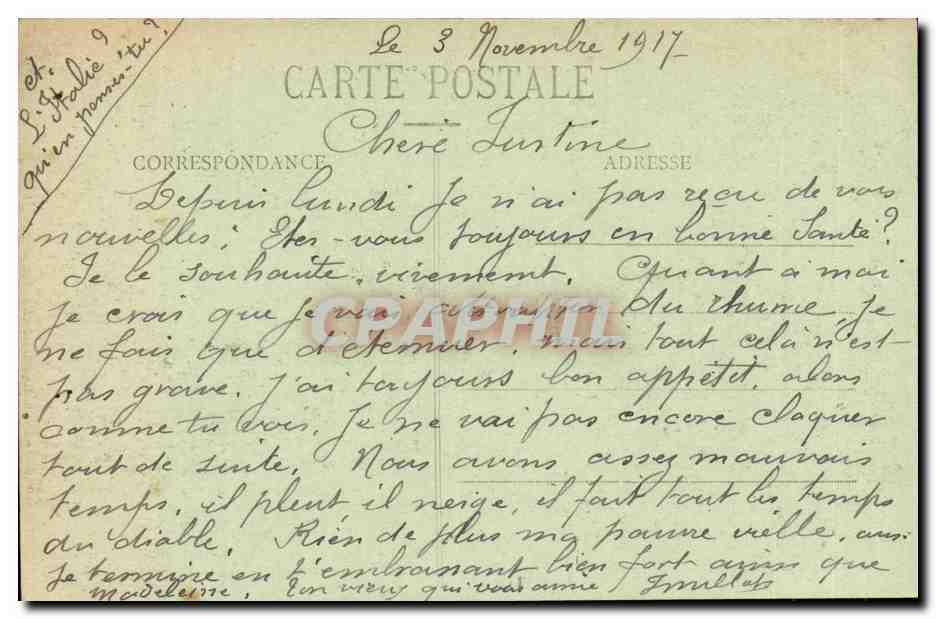 Le 3 Novembre 1917
et.
L'Italie ?
qu'en penses-tu ?
CARTE POSTALE
Chere Justine
CORRESPONDANCE
ADRESSE
Depuis lundi je n'ai pas reçu de vos
nouvelles ; Etes-vous toujours en bonne Santé ?
Je le souhaite vivement. Quant à moi
je crois que je vais du rhume, je
ne fais que d'éternuer, mais tout celà n'est
pas grave. j'ai toujours bon appétit, alors
comme tu vois, je ne vai pas encore claquer
tout de suite. Nous avons assez mauvais
temps, il pleut il neige, il fait tout les temps
du diable. Rien de plus ma pauvre vielle, aussi
je termine en t'embrassant bien fort ainsi que
Madeleine. Ton vieux qui vous aime
CPAPHIL